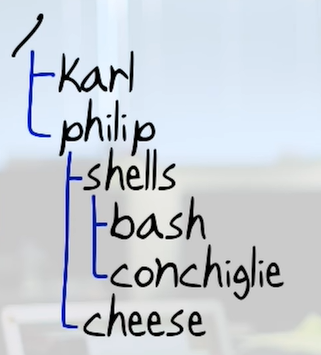 /
Karl
philip
shells
bash
conchiglie
cheese